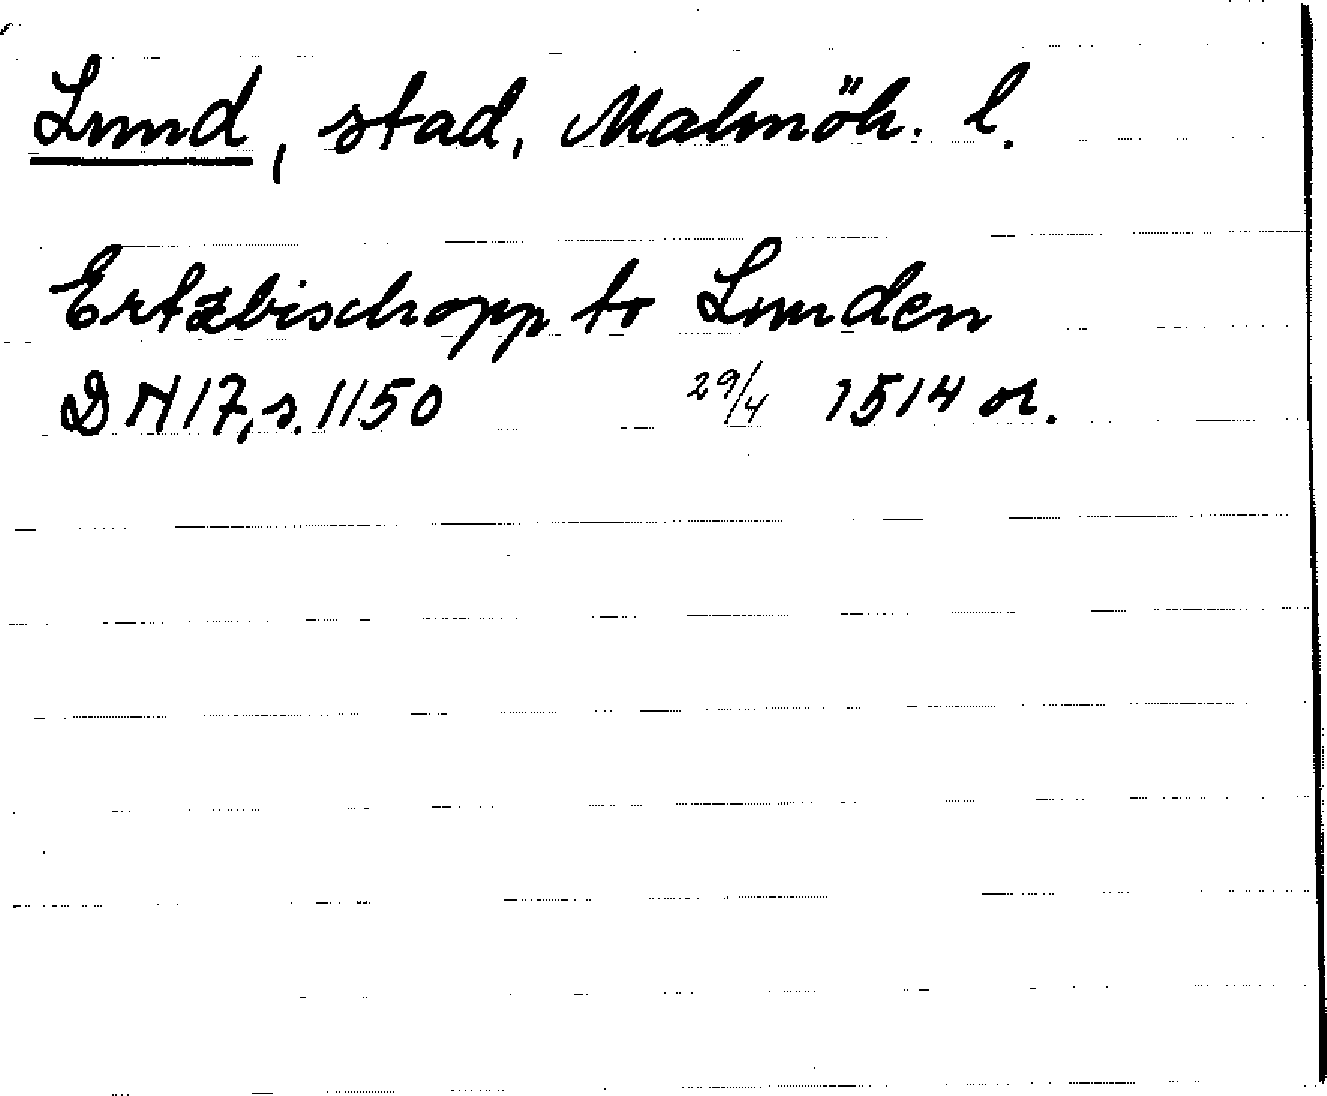 Lund, stad, Malmöh. l.
Ertzbischopp to Lunden
DN 17, s. 1150 29/4 1514 or.